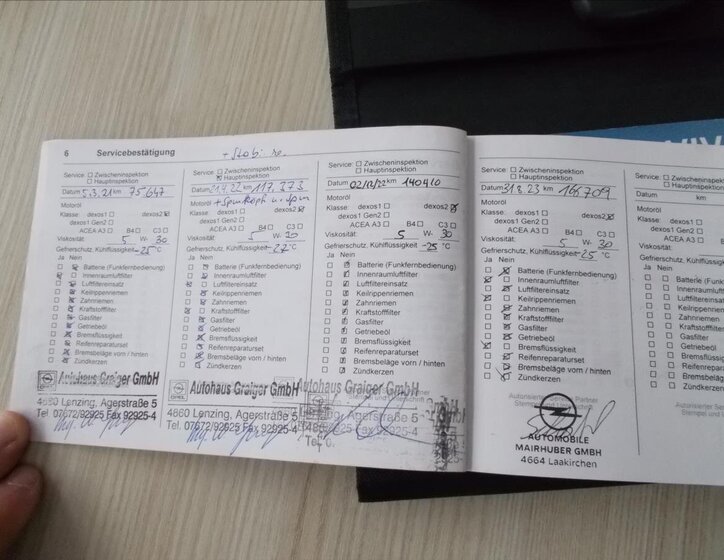 6 Servicebestätigung
+ Stab. re.
Service: ☐ Zwischeninspektion
☐ Hauptinspektion
Datum 5.3.21 km 75.647
Motoröl
Klasse: dexos1 ☐ dexos2 ☒
dexos1 Gen2 ☐
ACEA A3 ☐ B4 ☐ C3 ☐
Viskosität: 5 W- 30
Gefrierschutz, Kühlflüssigkeit -25 °C
Ja Nein
Batterie (Funkfernbedienung)
Innenraumluftfilter
Luftfiltereinsatz
Keilrippenriemen
Zahnriemen
Kraftstofffilter
Gasfilter
Getriebeöl
Bremsflüssigkeit
Reifenreparaturset
Bremsbeläge vorn / hinten
Zündkerzen
Autohaus Graiger GmbH
4860 Lenzing, Agerstraße 5
Tel. 07672/92925 Fax 92925-4
Service: ☐ Zwischeninspektion
☒ Hauptinspektion
Datum 21.4.22 km 117.373
Motoröl
Klasse: dexos1 ☐ dexos2 ☒
dexos1 Gen2 ☐
ACEA A3 ☐ B4 ☐ C3 ☐
Viskosität: 5 W- 30
Gefrierschutz, Kühlflüssigkeit -27 °C
Ja Nein
Batterie (Funkfernbedienung)
Innenraumluftfilter
Luftfiltereinsatz
Keilrippenriemen
Zahnriemen
Kraftstofffilter
Gasfilter
Getriebeöl
Bremsflüssigkeit
Reifenreparaturset
Bremsbeläge vorn / hinten
Zündkerzen
Autohaus Graiger GmbH
4860 Lenzing, Agerstraße 5
Tel. 07672/92925 Fax 92925-4
Service: ☐ Zwischeninspektion
☐ Hauptinspektion
Datum 02/12/22 km 140410
Motoröl
Klasse: dexos1 ☐ dexos2 ☒
dexos1 Gen2 ☐
ACEA A3 ☐ B4 ☐ C3 ☐
Viskosität: 5 W- 30
Gefrierschutz, Kühlflüssigkeit -25 °C
Ja Nein
Batterie (Funkfernbedienung)
Innenraumluftfilter
Luftfiltereinsatz
Keilrippenriemen
Zahnriemen
Kraftstofffilter
Gasfilter
Getriebeöl
Bremsflüssigkeit
Reifenreparaturset
Bremsbeläge vorn / hinten
Zündkerzen
Autohaus Graiger GmbH
Agerstraße 5
Service: ☐ Zwischeninspektion
☐ Hauptinspektion
Datum km
Motoröl
Klasse: dexos1 ☐ dexos2 ☒
dexos1 Gen2 ☐
ACEA A3 ☐ B4 ☐ C3 ☐
Viskosität: 5 W- 30
Gefrierschutz, Kühlflüssigkeit -25 °C
Ja Nein
Batterie (Funkfernbedienung)
Innenraumluftfilter
Luftfiltereinsatz
Keilrippenriemen
Zahnriemen
Kraftstofffilter
Gasfilter
Getriebeöl
Bremsflüssigkeit
Reifenreparaturset
Bremsbeläge vorn / hinten
Zündkerzen
AUTOMOBILE
MAIRHUBER GMBH
4664 Laakirchen
Service: ☐ Zwischen
☐ Hauptins
Datum km
Motoröl
Klasse: dexos1 ☐
dexos1 Gen2 ☐
ACEA A3 ☐
Viskosität:
Gefrierschutz, Kühlflüss
Ja Nein
Batterie (Funkf
Innenraumluf
Luftfiltereinsa
Keilrippenrie
Zahnriemen
Kraftstofffilte
Gasfilter
Getriebeöl
Bremsflüss
Reifenrepar
Bremsbeläg
Zündkerzen